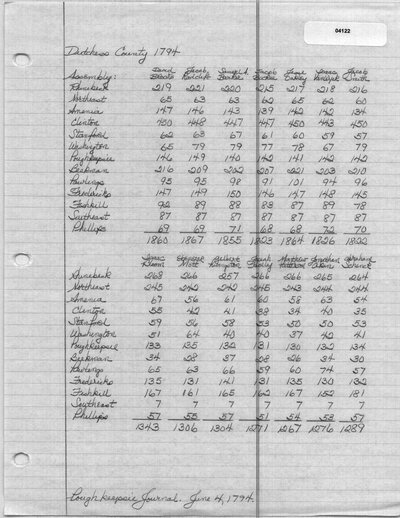 04122
Dutchess County 1794
David Jacob Samuel A. Jacob Jesse Isaac Jacob
Assembly: Brooks Radclift Barker Bockee Oakley Smith
Rhinebeck 219 221 220 215 217 218 216
Northeast 65 63 63 62 65 62 60
Amenia 147 146 143 139 142 142 134
Clinton 450 448 447 447 450 443 450
Stanford 62 63 67 61 60 59 57
Washington 65 79 79 77 78 67 79
Poughkeepsie 146 149 140 142 141 142 142
Beekman 216 209 202 207 221 203 210
Pawlings 95 95 98 91 101 94 96
Fredericks 147 149 150 146 147 148 145
Fishkill 92 89 88 83 87 89 78
Southeast 87 87 87 87 87 87 87
Phillips 69 69 71 68 68 72 70
1860 1867 1855 1823 1864 1826 1822
Isaac Ebenezer Gilbert Matthew Jonathan Abraham
Bloom Mott Patterson Schenck
Rhinebeck 268 266 257 266 266 265 264
Northeast 245 242 242 245 243 244 244
Amenia 67 56 61 60 58 63 54
Clinton 55 42 41 38 34 40 35
Stanford 59 56 58 53 50 50 53
Washington 51 64 40 40 37 42 41
Poughkeepsie 133 135 132 131 130 132 134
Beekman 34 28 37 28 26 34 30
Pawlings 65 63 66 59 60 74 57
Fredericks 135 131 141 131 135 130 132
Fishkill 167 161 165 162 167 152 181
Southeast 7 7 7 7 7 7 7
Phillips 57 55 57 51 54 53 57
1343 1306 1304 1271 1267 1276 1289
Poughkeepsie Journal. June 4, 1794.